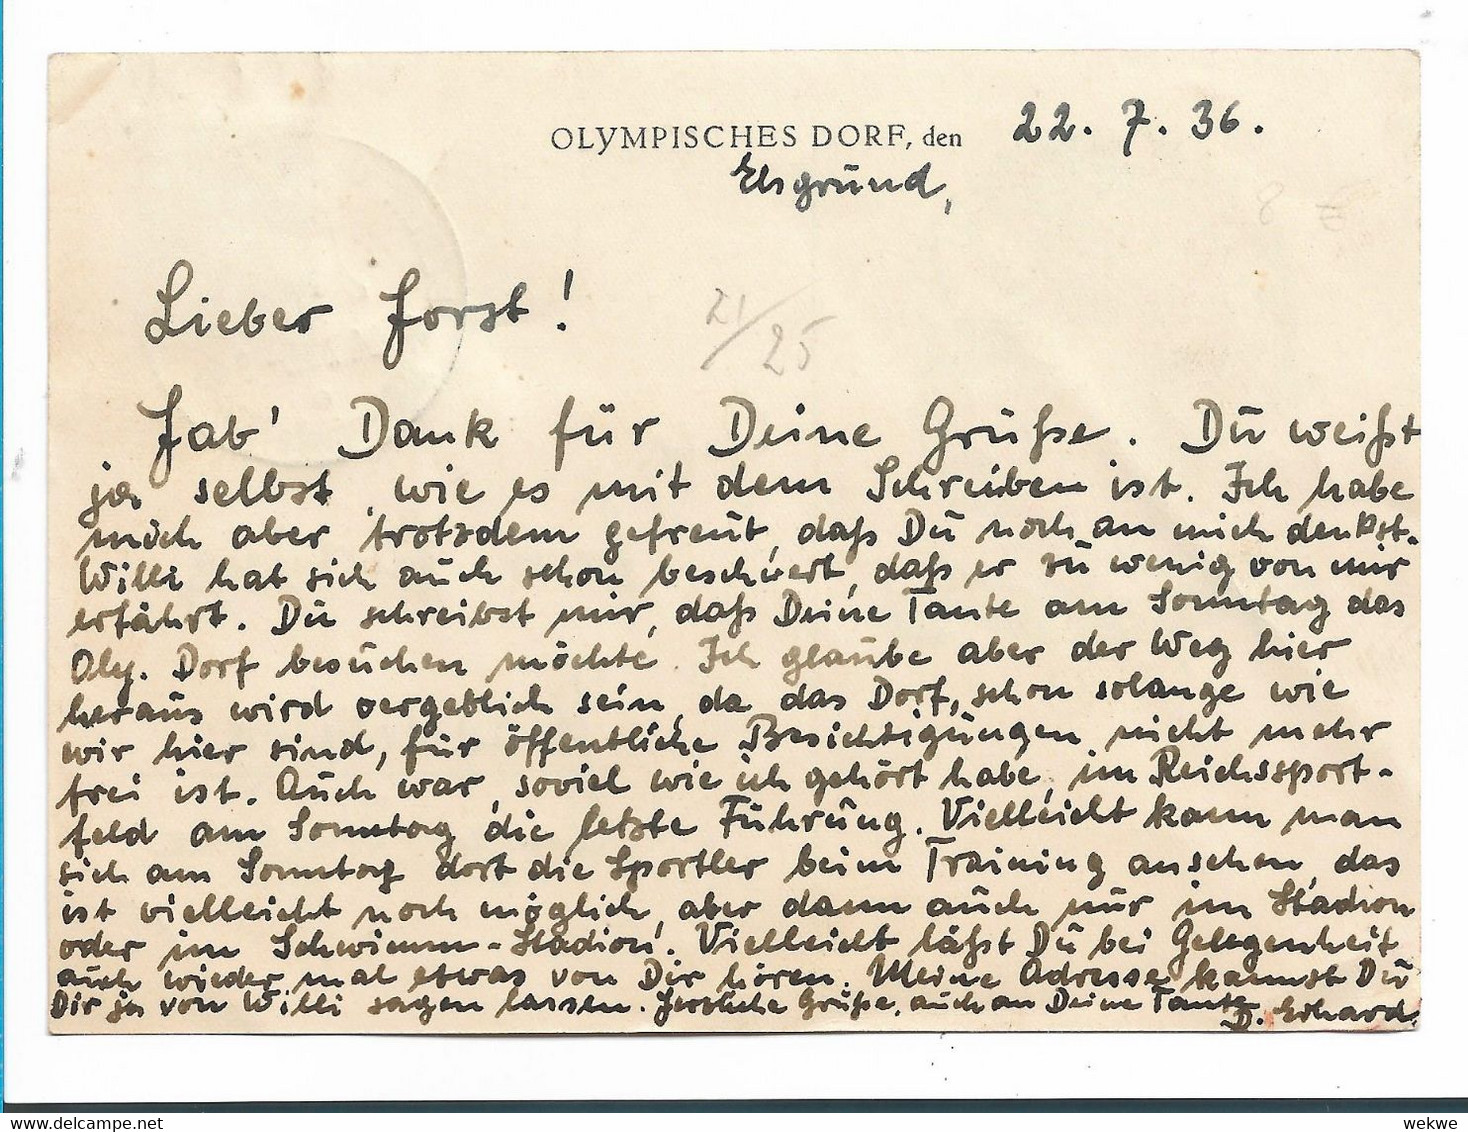 OLYMPISCHES DORF, den 22. 7. 36.
Elsgrund,
Lieber Horst!
21/25
Hab' Dank für Deine Grüße. Du weißt
ja selbst, wie es mit dem Schreiben ist. Ich habe
mich aber trotzdem gefreut, daß Du noch an mich denkst.
Willi hat sich auch schon beschwert, daß er zu wenig von mir
erfährt. Du schreibst mir, daß Deine Tante am Sonntag das
Oly. Dorf besuchen möchte. Ich glaube aber der Weg hier
heraus wird vergeblich sein, da das Dorf, schon solange wie
wir hier sind, für öffentliche Besichtigungen nicht mehr
frei ist. Auch war, soviel wie ich gehört habe, im Reichssport-
feld am Sonntag die letzte Führung. Vielleicht kann man
sich am Sonntag dort die Sportler beim Training ansehen, das
ist vielleicht noch möglich, aber dann auch nur im Stadion
oder im Schwimm-Stadion. Vielleicht läßt Du bei Gelegenheit
auch wieder mal etwas von Dir hören. Meine Adresse kannst Du
Dir ja von Willi sagen lassen. Herzliche Grüße, auch an Deine Tante
D. Erhard.
wekwe